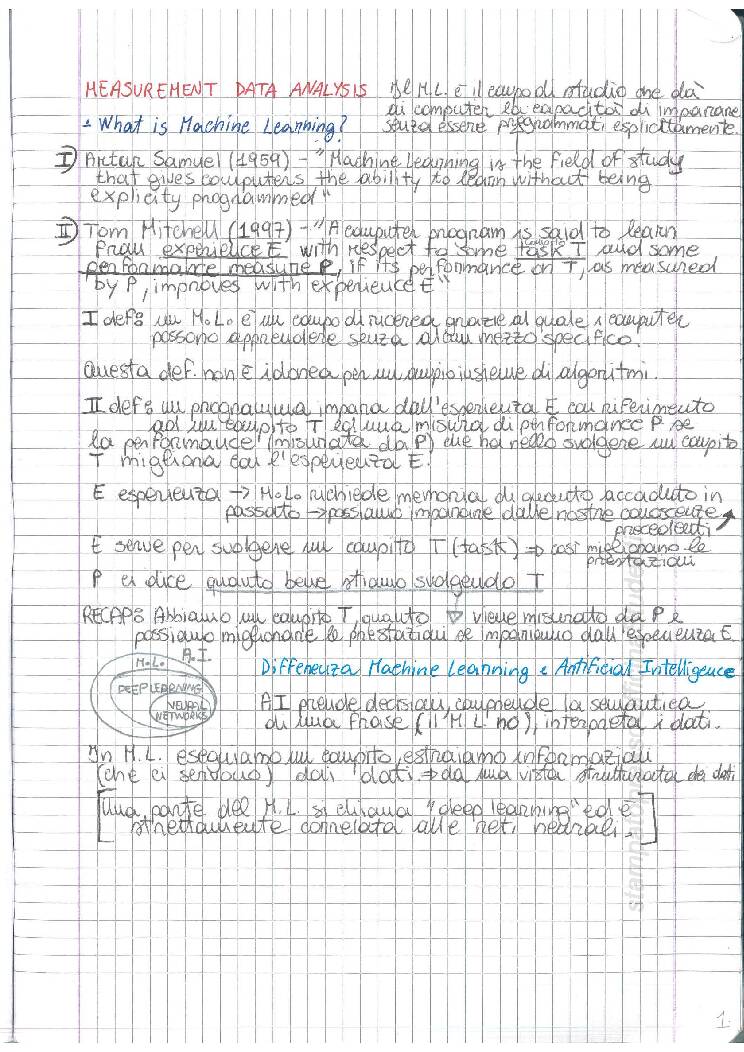 MEASUREMENT DATA ANALYSIS
Il M.L. è il campo di studio che dà
ai computer la capacità di imparare
senza essere programmati esplicitamente.
What is Machine Learning?
I) Artur Samuel (1959) - "Machine Learning is the field of study
that gives computers the ability to learn without being
explicity programmed"
II) Tom Mitchell (1997) - "A computer program is said to learn
from experience E with respect to some task T and some
compito
performance measure P, if its performance on T, as measured
by P, improves with experience E"
I def: un M.L. è un campo di ricerca grazie al quale i computer
possono apprendere senza alcun mezzo specifico.
Questa def. non è idonea per un ampio insieme di algoritmi.
II def: un programma impara dall'esperienza E con riferimento
ad un compito T ed una misura di performance P se
la performance (misurata da P) che ha nello svolgere un compito
T migliora con l'esperienza E.
E esperienza → M.L. richiede memoria di quanto accaduto in
passato → possiamo imparare dalle nostre conoscenze
precedenti
E serve per svolgere un compito T (task) ⇒ così migliorano le
prestazioni
P ci dice quanto bene stiamo svolgendo T
RECAP: Abbiamo un compito T, quanto viene misurato da P e
possiamo migliorare le prestazioni se impariamo dall'esperienza E.
A.I.
M.L.
DEEP LEARNING
NEURAL
NETWORKS
Differenza Machine Learning e Artificial Intelligence
AI prende decisioni, comprende la semantica
di una frase (il M.L. no), interpreta i dati.
In M.L. eseguiamo un compito, estraiamo informazioni
(che ci servono) dai dati ⇒ da una vista strutturata dei dati
[Una parte del M.L. si chiama "deep learning" ed è
strettamente correlata alle reti neurali.]
1